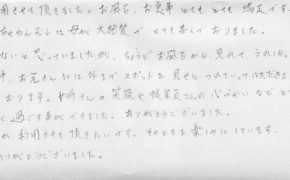 用させて頂きました。お風呂、お食事 とても とても 満足です。
ちゃわんむしは母が大絶賛で とても喜んで おりました。
ないと思っていましたが、ちょうどお風呂から 見れて うれしか
お兄さんには外までスポットを 見せに つれていっていただきまし
おります。女将さんの 笑顔や 従業員さんの 心づかい など と
く 過ごす事ができました。ありがとうございました。
が 利用させて頂きたいです。そのときを 楽しみにしています。
りがとうございました。